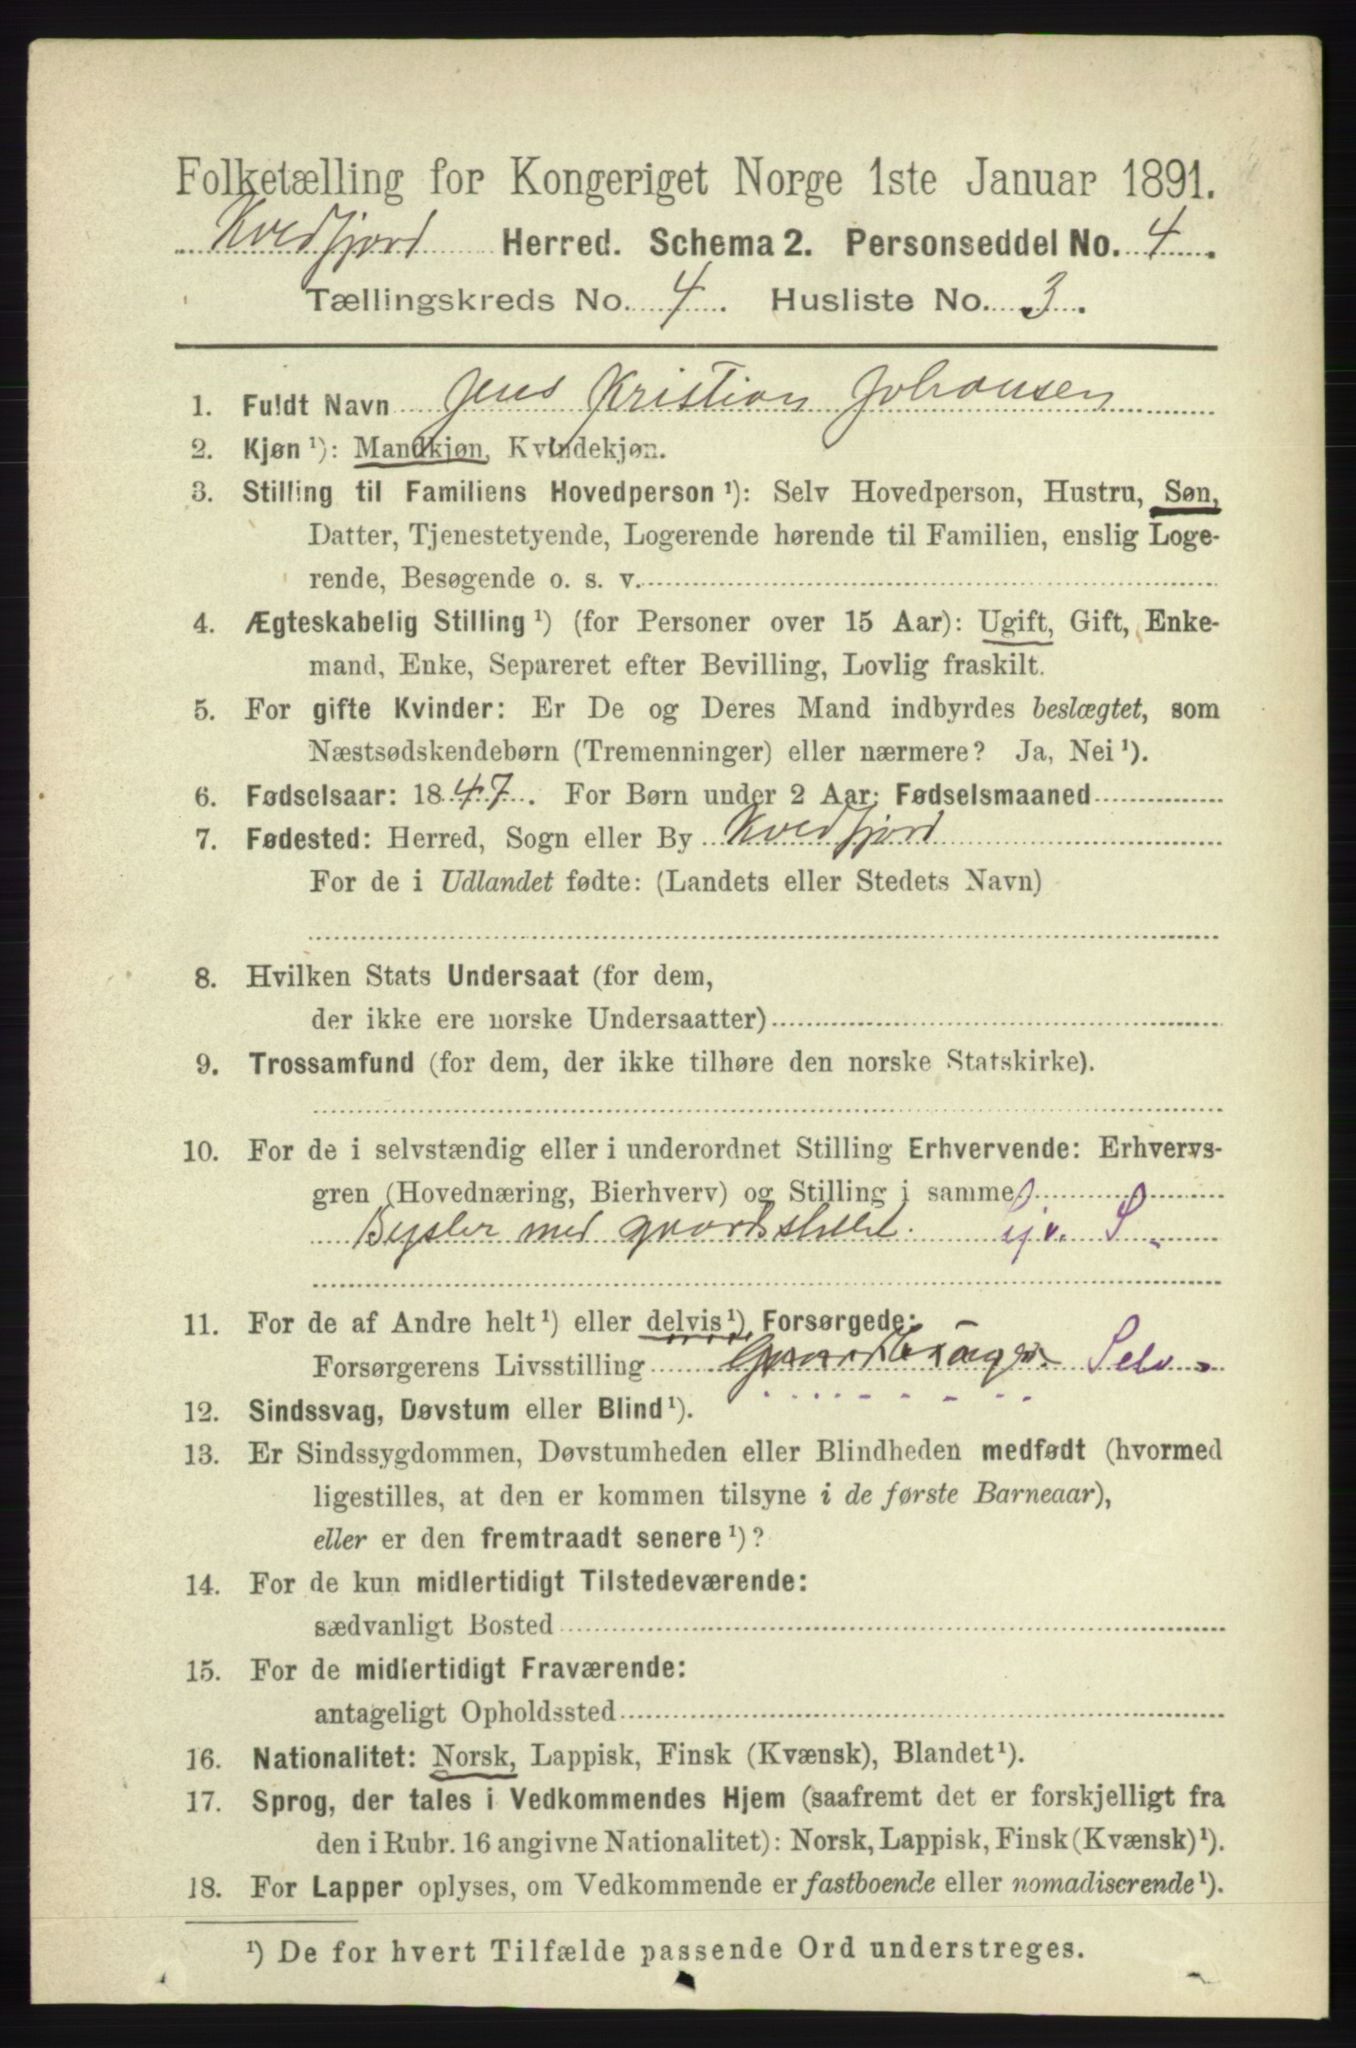 Folketælling for Kongeriget Norge 1ste Januar 1891.
Kvedfjord Herred. Schema 2. Personseddel No. 4.
Tællingskreds No. 4. Husliste No. 3.
1. Fuldt Navn Jens Kristian Johansen
2. Kjøn ¹): Mandkjøn, Kvindekjøn.
3. Stilling til Familiens Hovedperson ¹): Selv Hovedperson, Hustru, Søn,
Datter, Tjenestetyende, Logerende hørende til Familien, enslig Loge-
rende, Besøgende o. s. v.
4. Ægteskabelig Stilling ¹) (for Personer over 15 Aar): Ugift, Gift, Enke-
mand, Enke, Separeret efter Bevilling, Lovlig fraskilt.
5. For gifte Kvinder: Er De og Deres Mand indbyrdes beslægtet, som
Næstsødskendebørn (Tremenninger) eller nærmere? Ja, Nei ¹).
6. Fødselsaar: 1847. For Børn under 2 Aar: Fødselsmaaned
7. Fødested: Herred, Sogn eller By Kvedfjord
For de i Udlandet fødte: (Landets eller Stedets Navn)
8. Hvilken Stats Undersaat (for dem,
der ikke ere norske Undersaatter)
9. Trossamfund (for dem, der ikke tilhøre den norske Statskirke).
10. For de i selvstændig eller i underordnet Stilling Erhvervende: Erhvervs-
gren (Hovednæring, Bierhverv) og Stilling i samme
Bysler med gaardsstellet. S
11. For de af Andre helt ¹) eller delvis ¹) Forsørgede:
Forsørgerens Livsstilling Gaardbruger Selv
12. Sindssvag, Døvstum eller Blind ¹).
13. Er Sindssygdommen, Døvstumheden eller Blindheden medfødt (hvormed
ligestilles, at den er kommen tilsyne i de første Barneaar),
eller er den fremtraadt senere ¹)?
14. For de kun midlertidigt Tilstedeværende:
sædvanligt Bosted
15. For de midlertidigt Fraværende:
antageligt Opholdssted
16. Nationalitet: Norsk, Lappisk, Finsk (Kvænsk), Blandet ¹).
17. Sprog, der tales i Vedkommendes Hjem (saafremt det er forskjelligt fra
den i Rubr. 16 angivne Nationalitet): Norsk, Lappisk, Finsk (Kvænsk) ¹).
18. For Lapper oplyses, om Vedkommende er fastboende eller nomadiserende ¹).
¹) De for hvert Tilfælde passende Ord understreges.